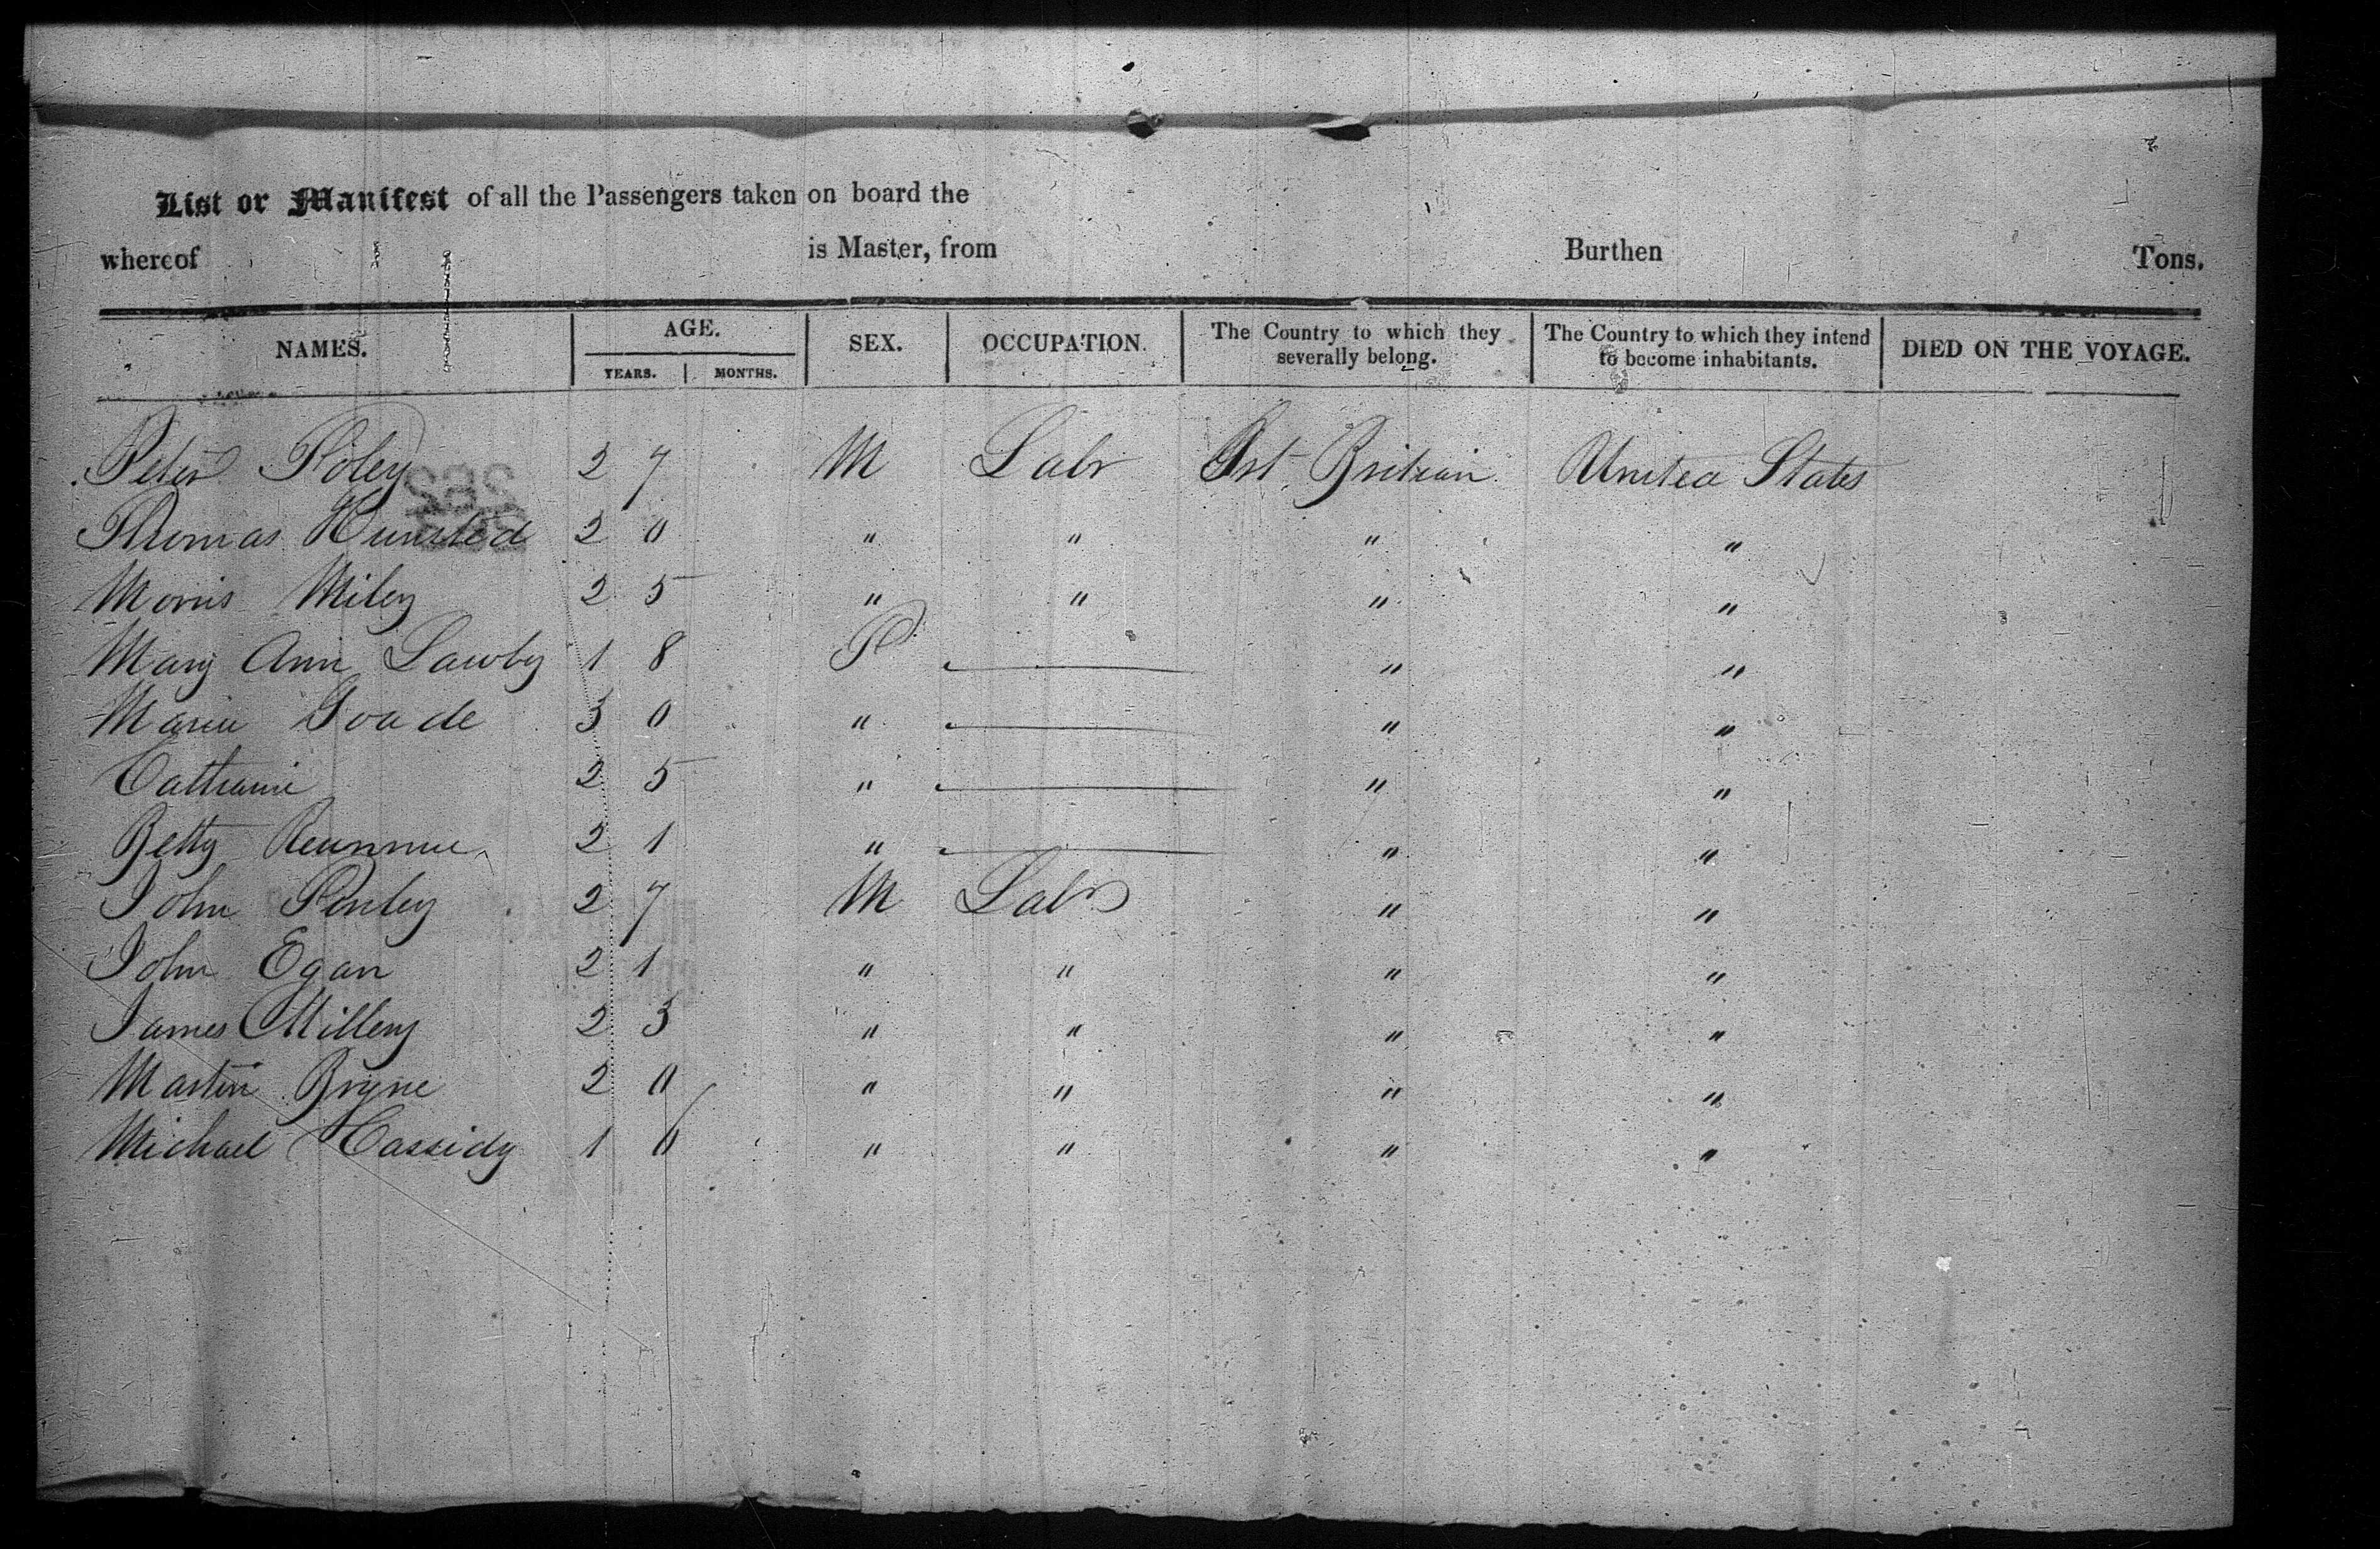 List or Manifest of all the Passengers taken on board the
whereof is Master, from Burthen Tons.
NAMES. AGE. SEX. OCCUPATION. The Country to which they severally belong. The Country to which they intend to become inhabitants. DIED ON THE VOYAGE.
YEARS. MONTHS.
Peter Foley 27 M Labr Grt Britian United States
Thomas 20 " " " "
Morris Miley 25 " " " "
Mary Ann Lawby 18 F " "
Maria Goade 30 " " "
Catharine 25 " " "
Betty 21 " " "
John 27 M Labr " "
John Egan 21 " " " "
James Milley 23 " " " "
Martin Bryne 20 " " " "
Michael Cassidy 16 " " " "